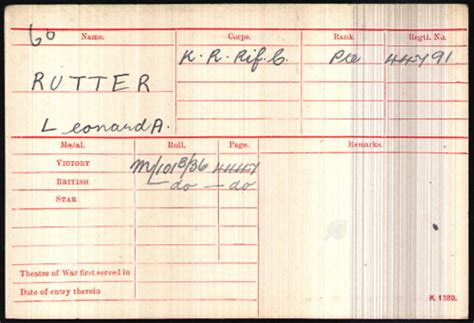 60
Name. Corps. Rank Regtl. No.
RUTTER K. R. Rif. C. Pte 44791
Leonard A.
Medal. Roll. Page. Remarks.
VICTORY M/1018/36 4447
BRITISH — do — do
STAR
Theatre of War first served in
Date of entry therein
K 1380.